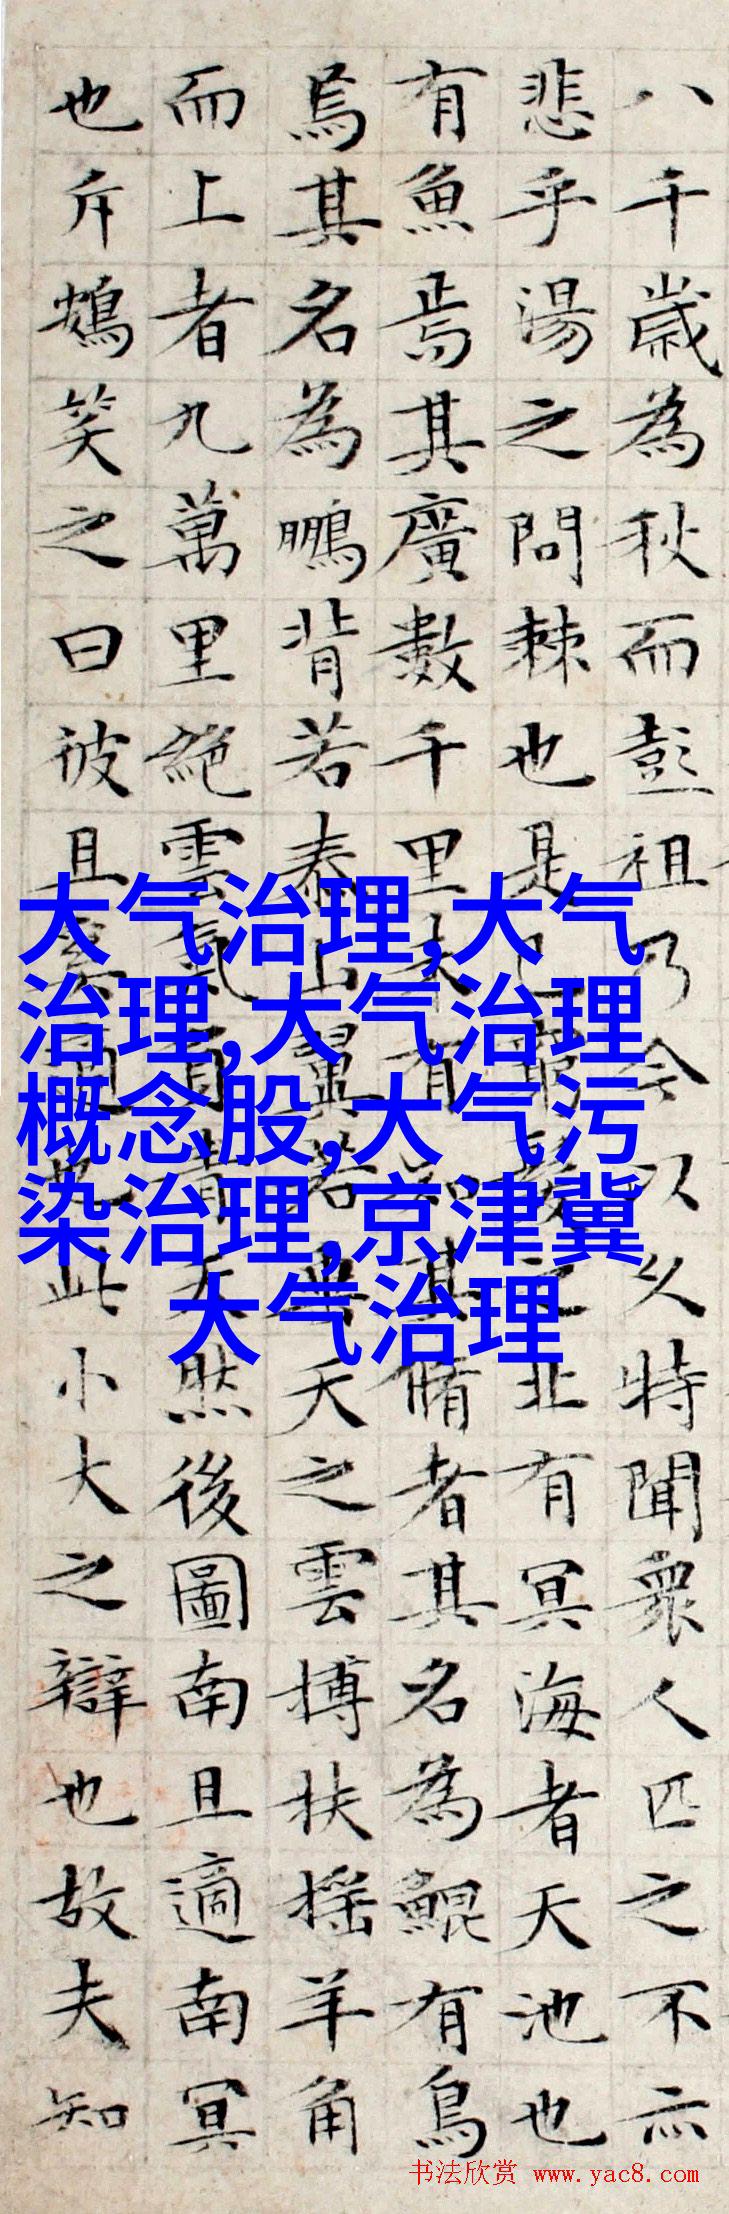 八千歲為秋而彭祖乃今以久特聞衆人匹之不亦
悲乎湯之問棘也是已窮髮之北有冥海者天池也
有魚焉其廣數千里未有知其脩者其名為鯤有鳥
焉其名為鵬背若泰山翼若垂天之雲搏扶搖羊角
而上者九萬里絕雲氣負青天然後圖南且適南冥
也斥鴳笑之曰彼且奚適也此小大之辯也故夫知
大气治理,大气
治理,大气治理
概念股,大气污
染治理,京津冀
大气治理
书法欣赏 www.yac8.com